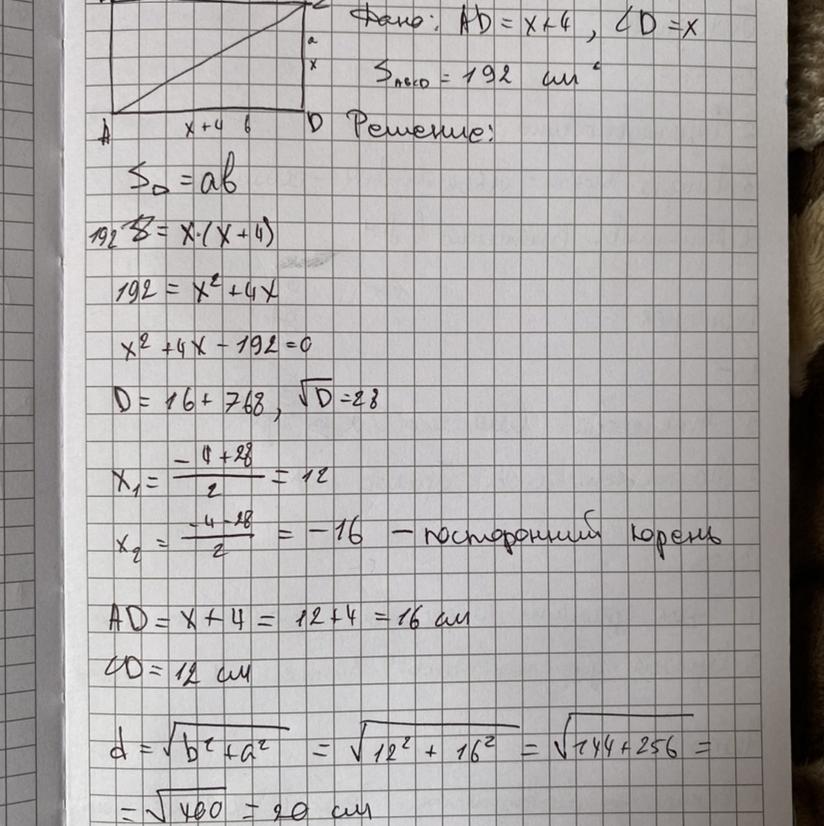 Дано: AD = x+4, CD = x
a
x
S ABCD = 192 см²
A x+4 b D Решение:
S▫ = ab
192 = x·(x+4)
192 = x² + 4x
x² + 4x - 192 = 0
D = 16 + 768, √D = 28
x₁ = (-4+28)/2 = 12
x₂ = (-4-28)/2 = -16 – посторонний корень
AD = x + 4 = 12+4 = 16 см
CD = 12 см
d = √(b² + a²) = √(12² + 16²) = √(144+256) =
= √400 = 20 см